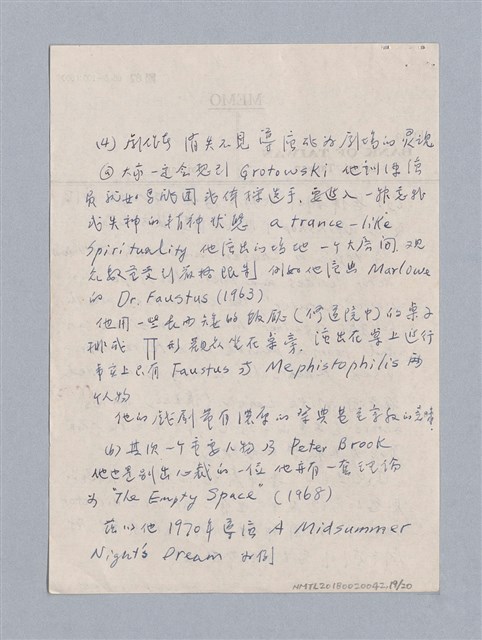 (4) 劇作家 消失不見 導演成為劇場的灵魂
ⓐ 大家一定会想到 Grotowski 他訓練演
員就如君 国 体操选手，要進入一種忘我
或失神的精神狀態 a trance-like
Spirituality 他演出的場地 一个大房间 观
众數主受到嚴格限制 例如他演出 Marlowe
的 Dr. Faustus (1963)
他用一些長而矮的飯廳(修道院中)的桌子
排成 ∏ 形 觀众坐在桌旁，演出在桌上进行
事实上只有 Faustus 与 Mephistophilis 两
个人物
他的戏劇帶有濃厚的 宗教的意味
(b) 其次一个主要人物乃 Peter Brook
他也是别出心裁的一位 他并有一套理论
为 "The Empty Space" (1968)
茲以他1970年導演 A Midsummer
Night's Dream 为例
MEMO
NMTL20150020042.19/20